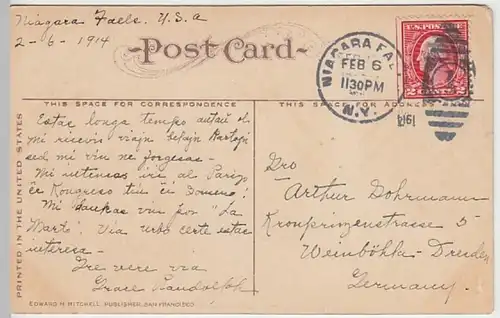 Niagara Falls. U.S.A
2-6-1914
Post Card
U.S. POSTAGE
2 CENTS 2
NIAGARA FAL
FEB 6
1130PM
N.Y.
191
THIS SPACE FOR CORRESPONDENCE
THIS SPACE FOR ADDRESS
PRINTED IN THE UNITED STATES
Estas longa tempo antaŭ ol
mi ricevis viajn belajn
sed mi vin ne forgesas -
Mi intencas iri al Parizo
ĉe Kongreso tiun ĉi Someno!
Mi dankas vin por "La
Marto". Via urbo certe estas
interesa -
Tre vere via
Grace Randolph
Dro
Arthur Dohrmann
Kronprinzenstrasse 5
Weinböhla-Dresden
Germany.
EDWARD H. MITCHELL, PUBLISHER, SAN FRANCISCO